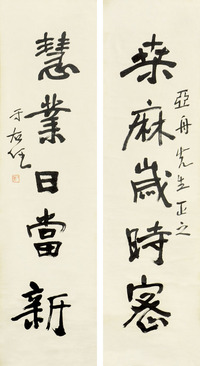 桑麻歲時密
亞舟先生正之
慧業日當新
于右任